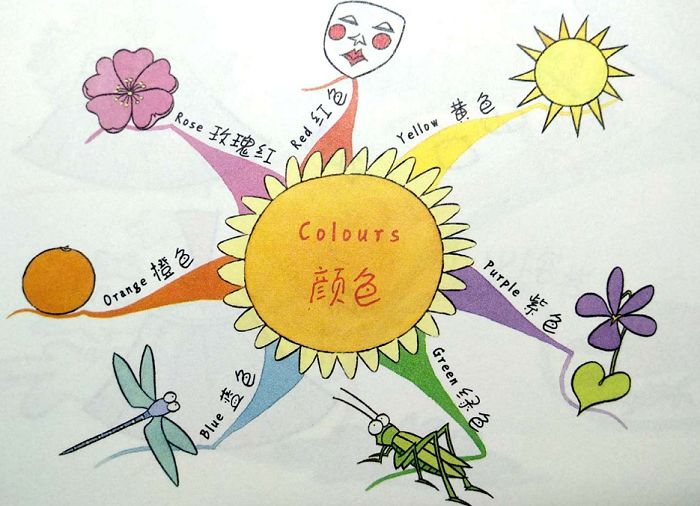 Colours
颜色
Red 红色
Yellow 黄色
Purple 紫色
Green 绿色
Blue 蓝色
Orange 橙色
Rose 玫瑰红